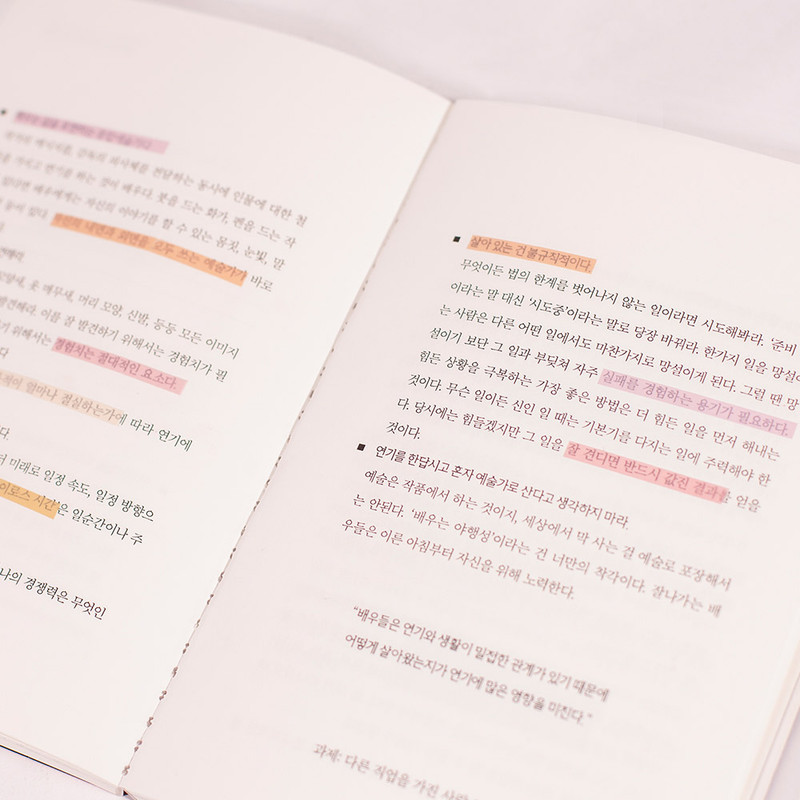 전달하는 동시에 인물에 대한 철
연기를 하는 것이 배우다. 붓을 드는 화가, 펜을 드는 작
배우에게는 자신의 이야기를 할 수 있는 몸짓, 눈빛, 말
등이 있다. 내면과 외면을 모두 쓰는 예술가가 바로
옷 매무새, 머리 모양, 신발, 등등 모든 이미지
발견해라. 이를 잘 발견하기 위해서는 경험치가 필
위해서는 경험치는 절대적인 요소다.
얼마나 절실하는가에 따라 연기에
다.
미래로 일정 속도, 일정 방향으
이로스 시간'은 일순간이나 주
나의 경쟁력은 무엇인
■ 살아 있는 건 불규칙적이다.
무엇이든 법의 한계를 벗어나지 않는 일이라면 시도해봐라. '준비
이라는 말 대신 '시도중'이라는 말로 당장 바꿔라. 한가지 일을 망설이
는 사람은 다른 어떤 일에서도 마찬가지로 망설이게 된다. 그럴 땐 망
설이기 보단 그 일과 부딪쳐 자주 실패를 경험하는 용기가 필요하다.
힘든 상황을 극복하는 가장 좋은 방법은 더 힘든 일을 먼저 해내는
것이다. 무슨 일이든 신인 일 때는 기본기를 다지는 일에 주력해야 한
다. 당시에는 힘들겠지만 그 일을 잘 견디면 반드시 값진 결과를 얻을
것이다.
■ 연기를 한답시고 혼자 예술가로 산다고 생각하지 마라.
예술은 작품에서 하는 것이지, 세상에서 막 사는 걸 예술로 포장해서
는 안된다. '배우는 야행성'이라는 건 너만의 착각이다. 잘나가는 배
우들은 이른 아침부터 자신을 위해 노력한다.
"배우들은 연기와 생활이 밀접한 관계가 있기 때문에
어떻게 살아왔는지가 연기에 많은 영향을 미친다."
과제: 다른 직업을 가진 사람